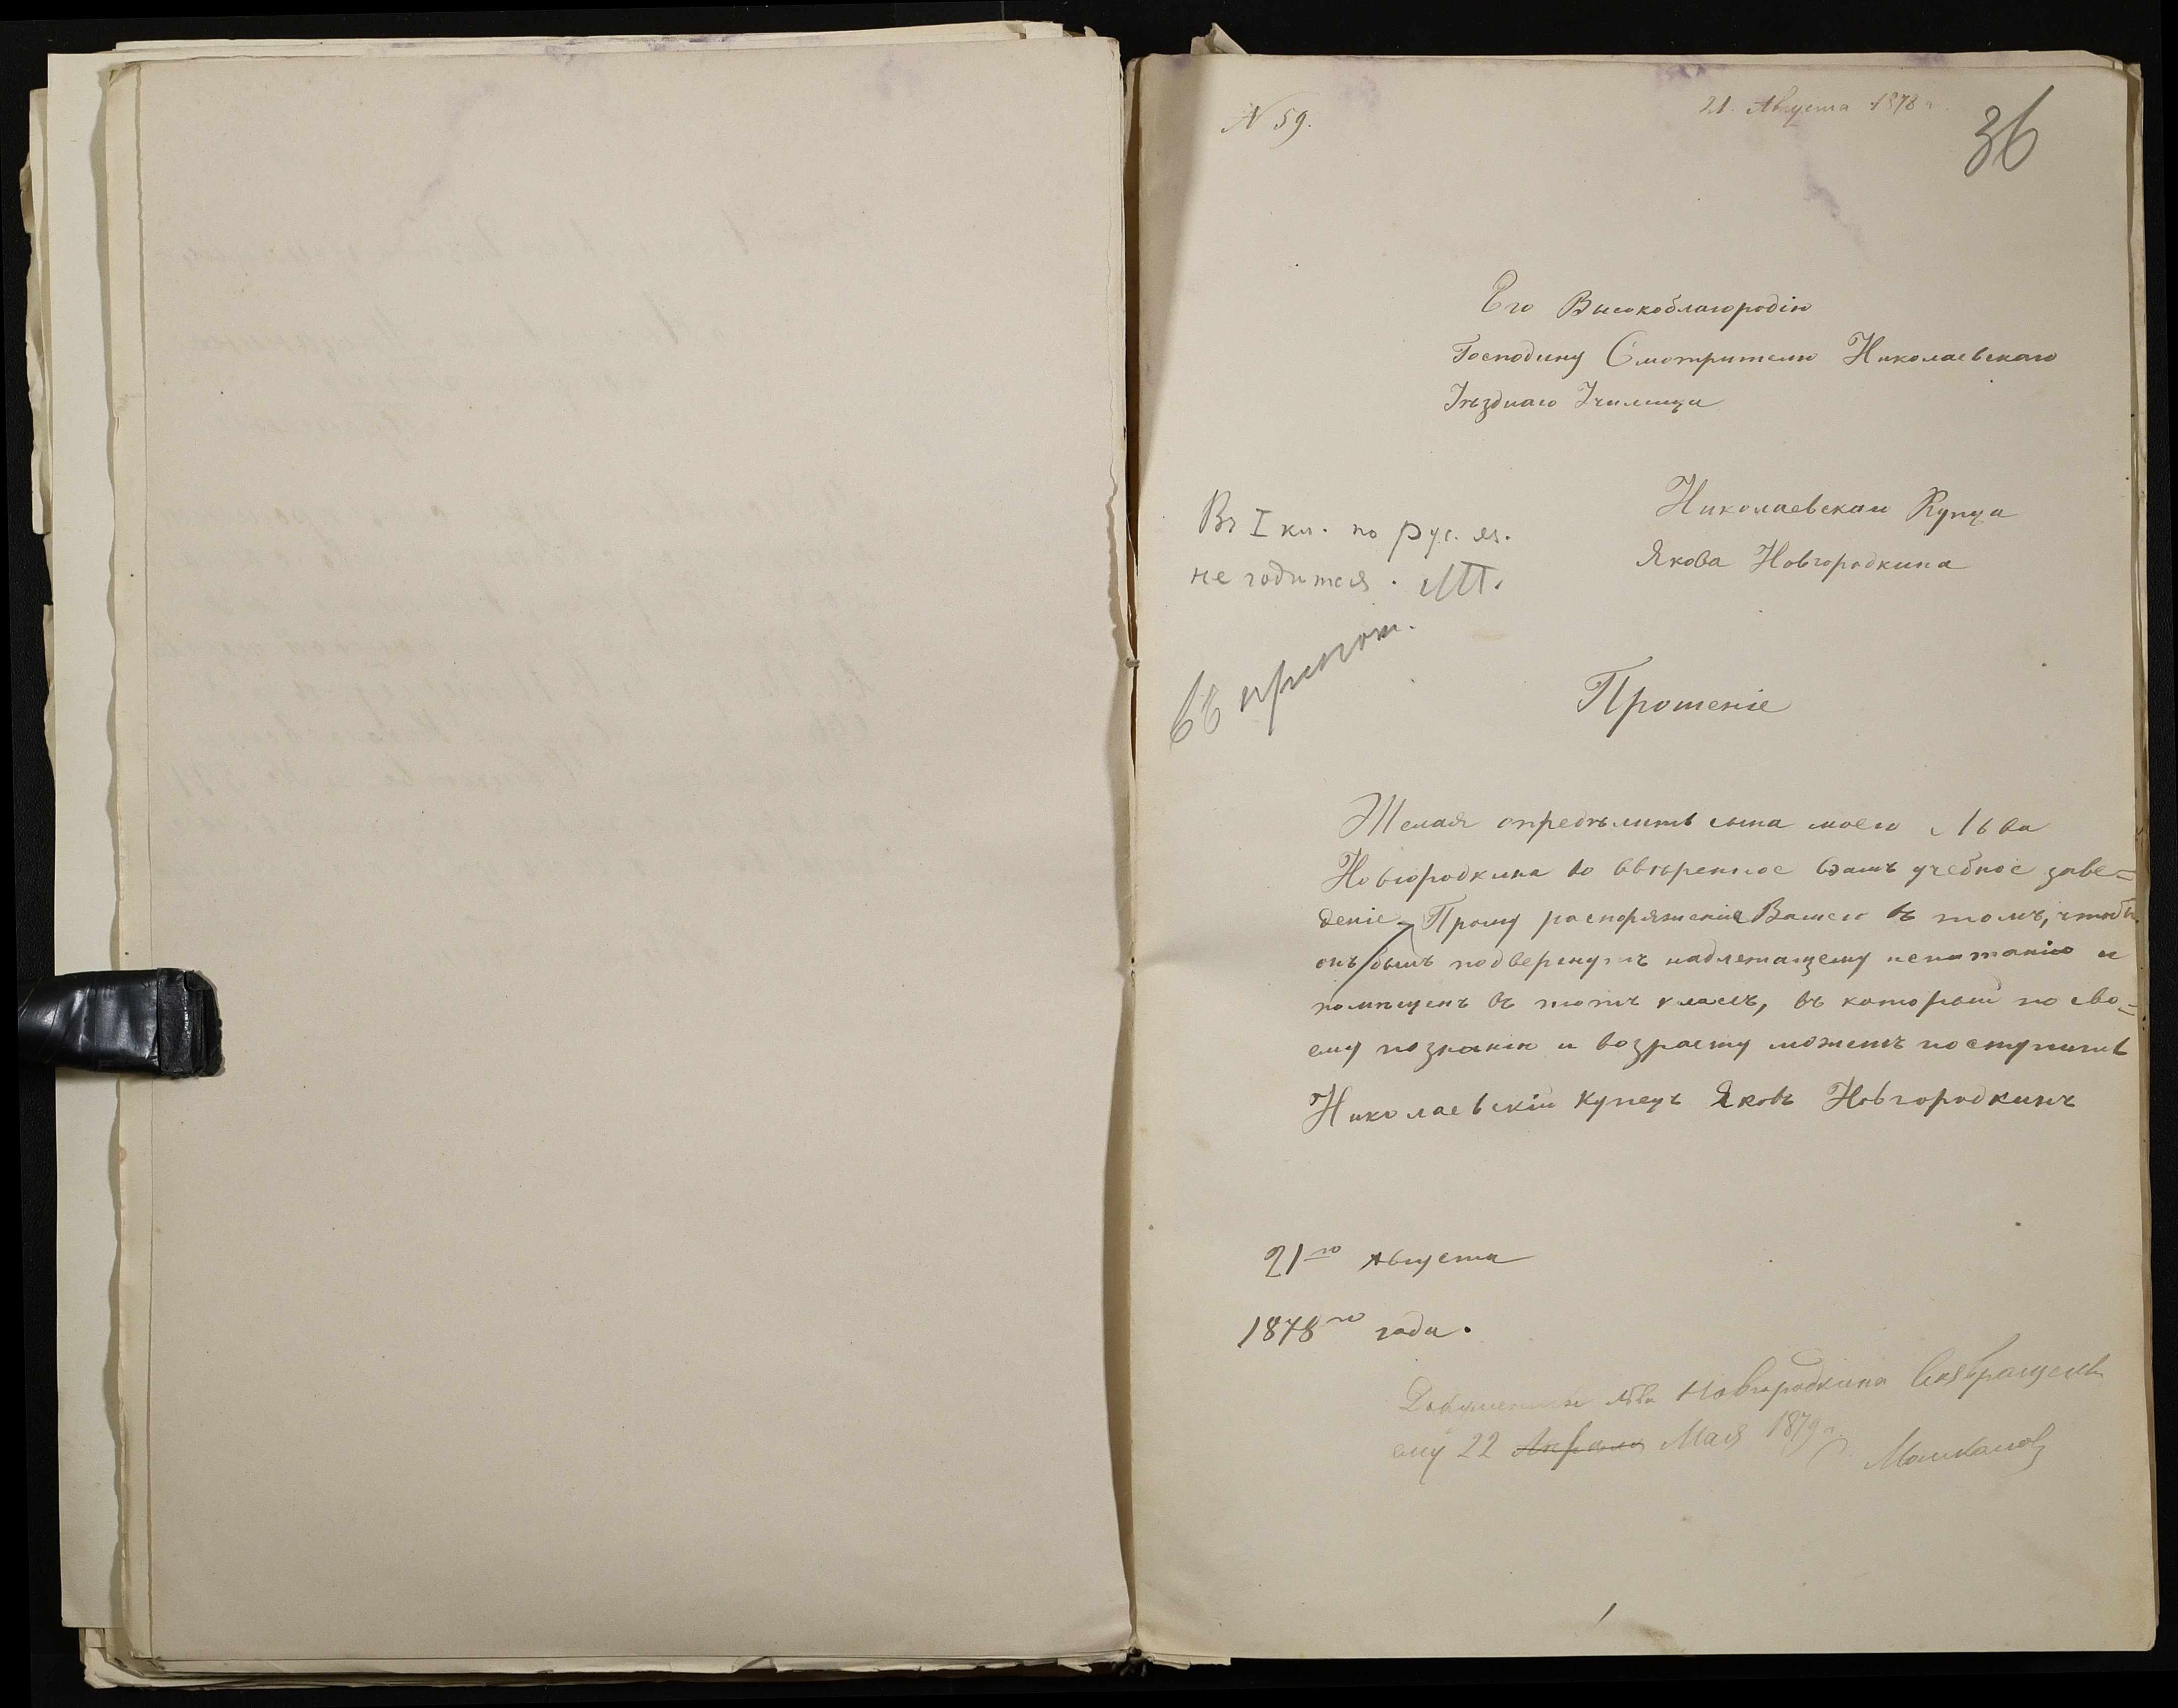 N 59.
21. Августа 1878 г.
36
Его Высокоблагородію
Господину Смотрителю Николаевскаго
Уѣзднаго Училища
Николаевскаи Купца
Якова Новгородкина
Въ I кл. по рус. яз.
не годится. МП.
въ пригот.
Прошеніе
Желая опредѣлить сына моего Льва
Новгородкина во ввѣренное вамъ учебное заве=
деніе Прошу распоряженія Вашего въ томъ, чтобы
онъ былъ подвергнутъ надлежащему испытанію и
помѣщенъ въ тотъ классъ, въ который по сво=
ему познанію и возрасту можетъ поступить
Николаевскій купецъ Яковъ Новгородкинъ
21го Августа
1878го года.
Документы Льва Новгородкина
ему 22 Апреля Мая 1879 г.